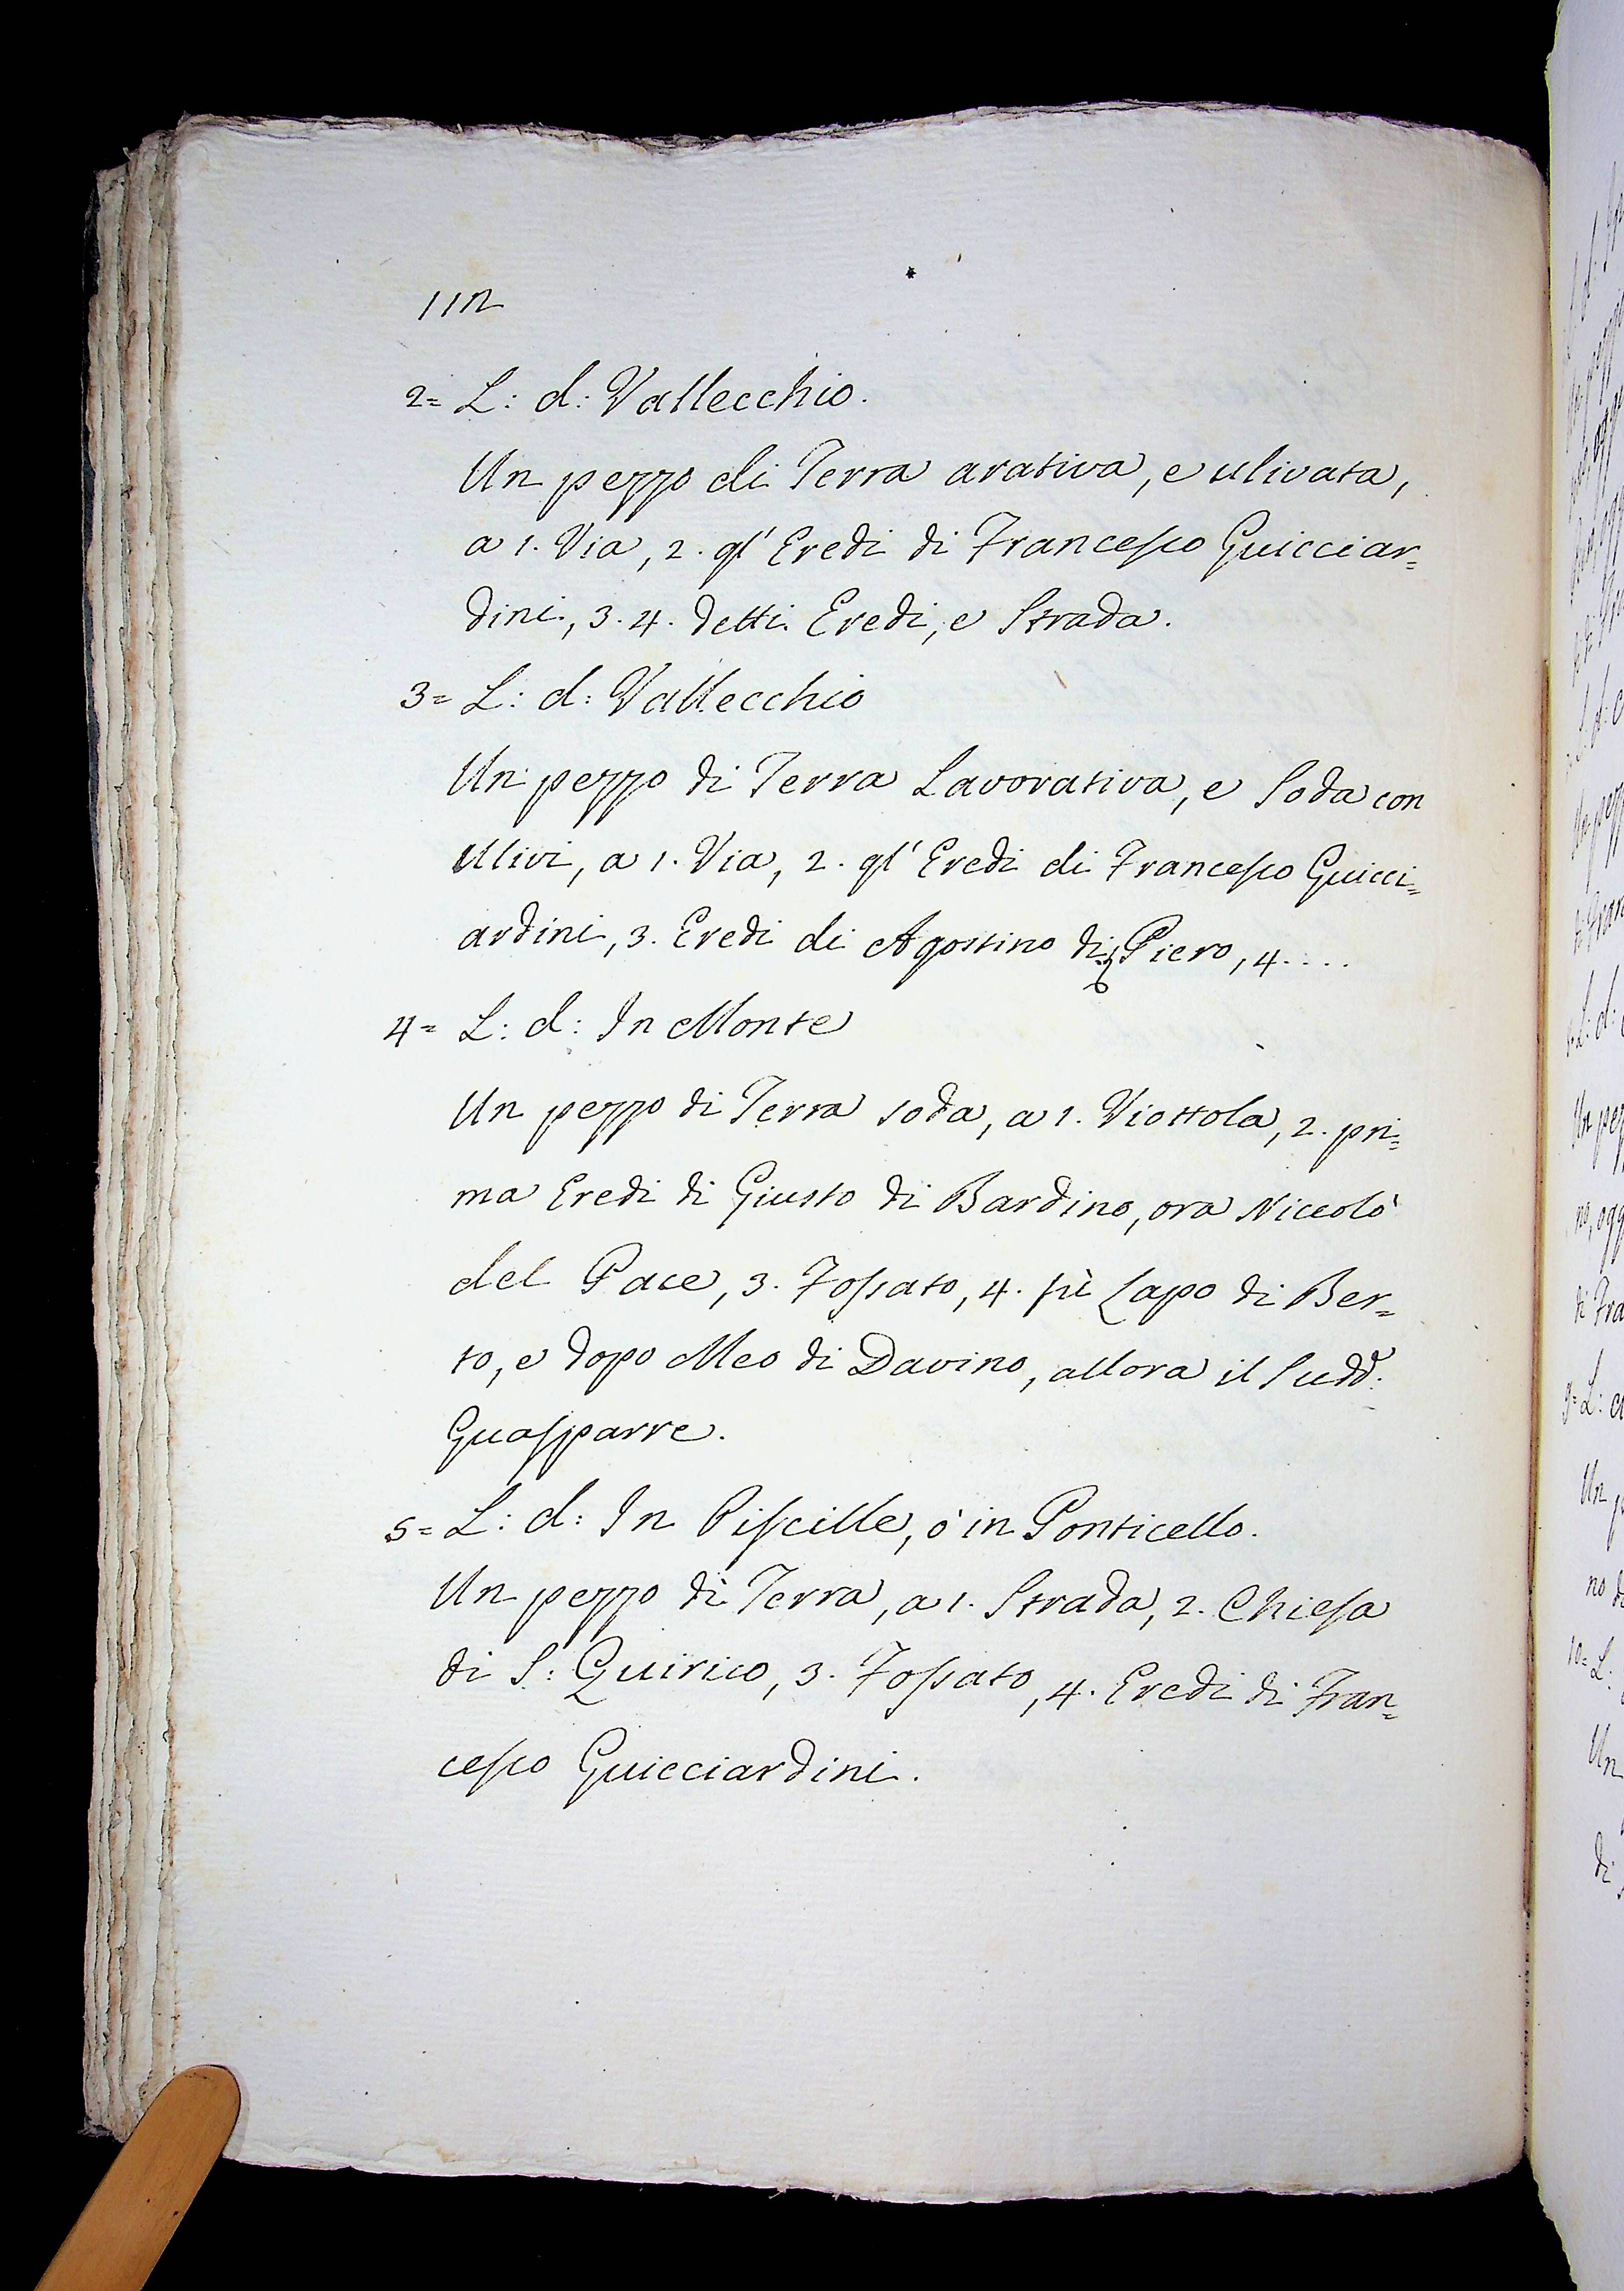 112
2= L: d: Vallecchio.
Un pezzo di Terra arativa, e ulivata,
a 1. Via, 2. gl' Eredi di Francesco Guicciar=
dini, 3. 4. detti Eredi, e Strada.
3= L: d: Vallecchio
Un pezzo di Terra Lavorativa, e Soda con
Ulivi, a 1. Via, 2. gl' Eredi di Francesco Guicci=
ardini, 3. Eredi di Agostino di Piero, 4....
4= L: d: In Monte
Un pezzo di Terra soda, a 1. Viottola, 2. pri=
ma Eredi di Giusto di Bardino, ora Niccolò
del Pace, 3. Fossato, 4. fù Lapo di Ber=
to, e dopo Meo di Davino, allora il Sudd:
Guasparre.
5= L: d: In Piscille, ò in Ponticello.
Un pezzo di Terra, a 1. Strada, 2. Chiesa
di S: Quirico, 3. Fossato, 4. Eredi di Fran=
cesco Guicciardini.